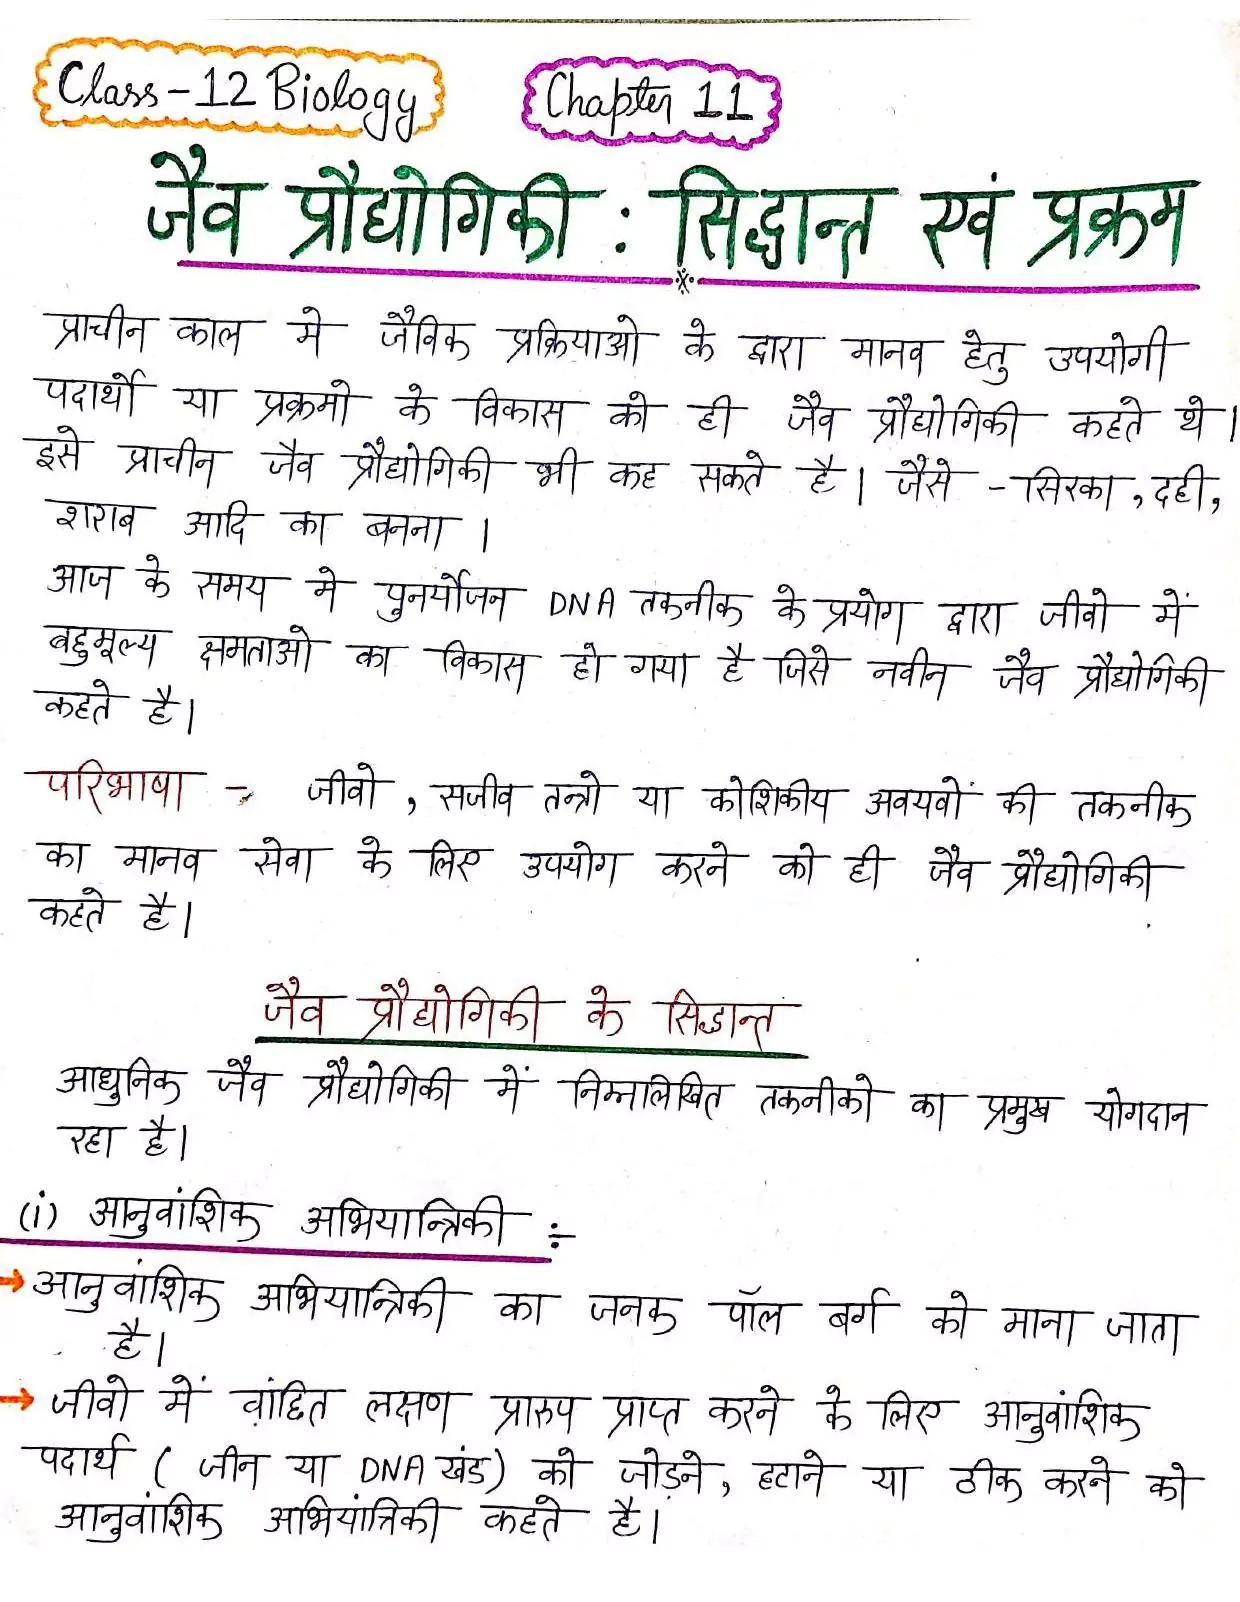 Class-12 Biology
Chapter 11
जैव प्रौद्योगिकी : सिद्धान्त एवं प्रक्रम
प्राचीन काल मे जैविक प्रक्रियाओ के द्वारा मानव हेतु उपयोगी
पदार्थो या प्रक्रमो के विकास को ही जैव प्रौद्योगिकी कहते थे।
इसे प्राचीन जैव प्रौद्योगिकी भी कह सकते है। जैसे - सिरका, दही,
शराब आदि का बनना ।
आज के समय मे पुनर्योजन DNA तकनीक के प्रयोग द्वारा जीवो में
बहुमूल्य क्षमताओ का विकास हो गया है जिसे नवीन जैव प्रौद्योगिकी
कहते है।
परिभाषा → जीवो, सजीव तन्त्रो या कोशिकीय अवयवों की तकनीक
का मानव सेवा के लिए उपयोग करने को ही जैव प्रौद्योगिकी
कहते है।
जैव प्रौद्योगिकी के सिद्धान्त
आधुनिक जैव प्रौद्योगिकी में निम्नलिखित तकनीको का प्रमुख योगदान
रहा है।
(i) आनुवांशिक अभियान्त्रिकी :-
→ आनुवांशिक अभियान्त्रिकी का जनक पॉल बर्ग को माना जाता
है।
→ जीवो में वांछित लक्षण प्रारुप प्राप्त करने के लिए आनुवांशिक
पदार्थ ( जीन या DNA खंड) को जोड़ने, हटाने या ठीक करने को
आनुवांशिक अभियांत्रिकी कहते है।